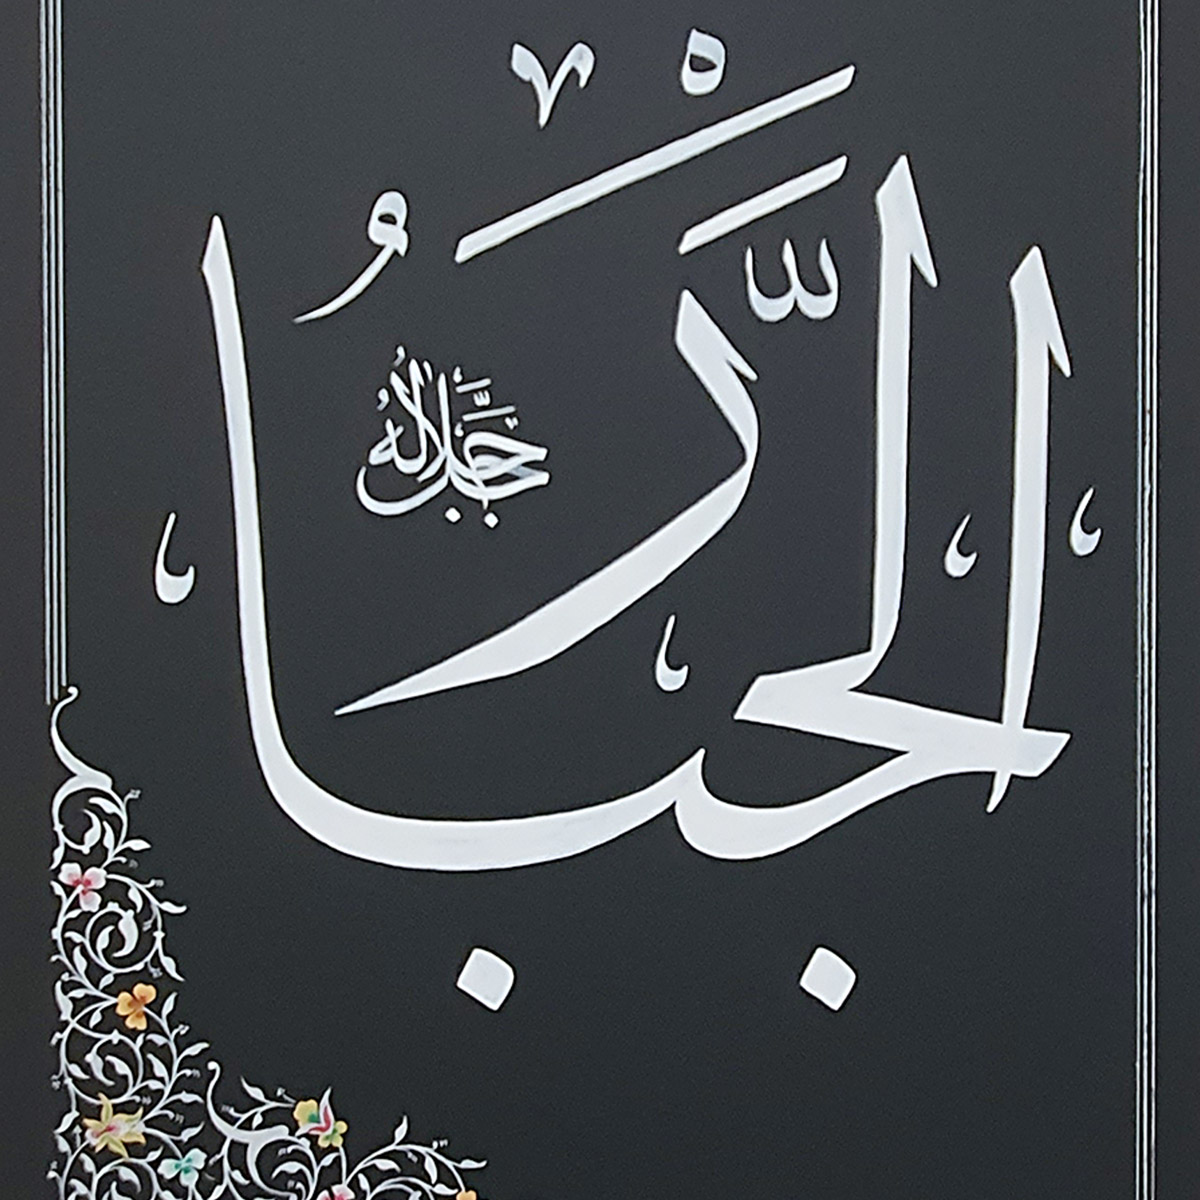 الْجَبَّارُ
جَلَّ جَلَالُهُ